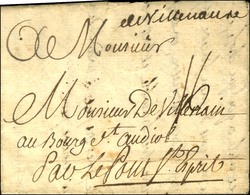 de Villenauxe
A Monsieur
Monsieur De Villerain
au Bourg St. andiol
Par Le Pont St. Esprit